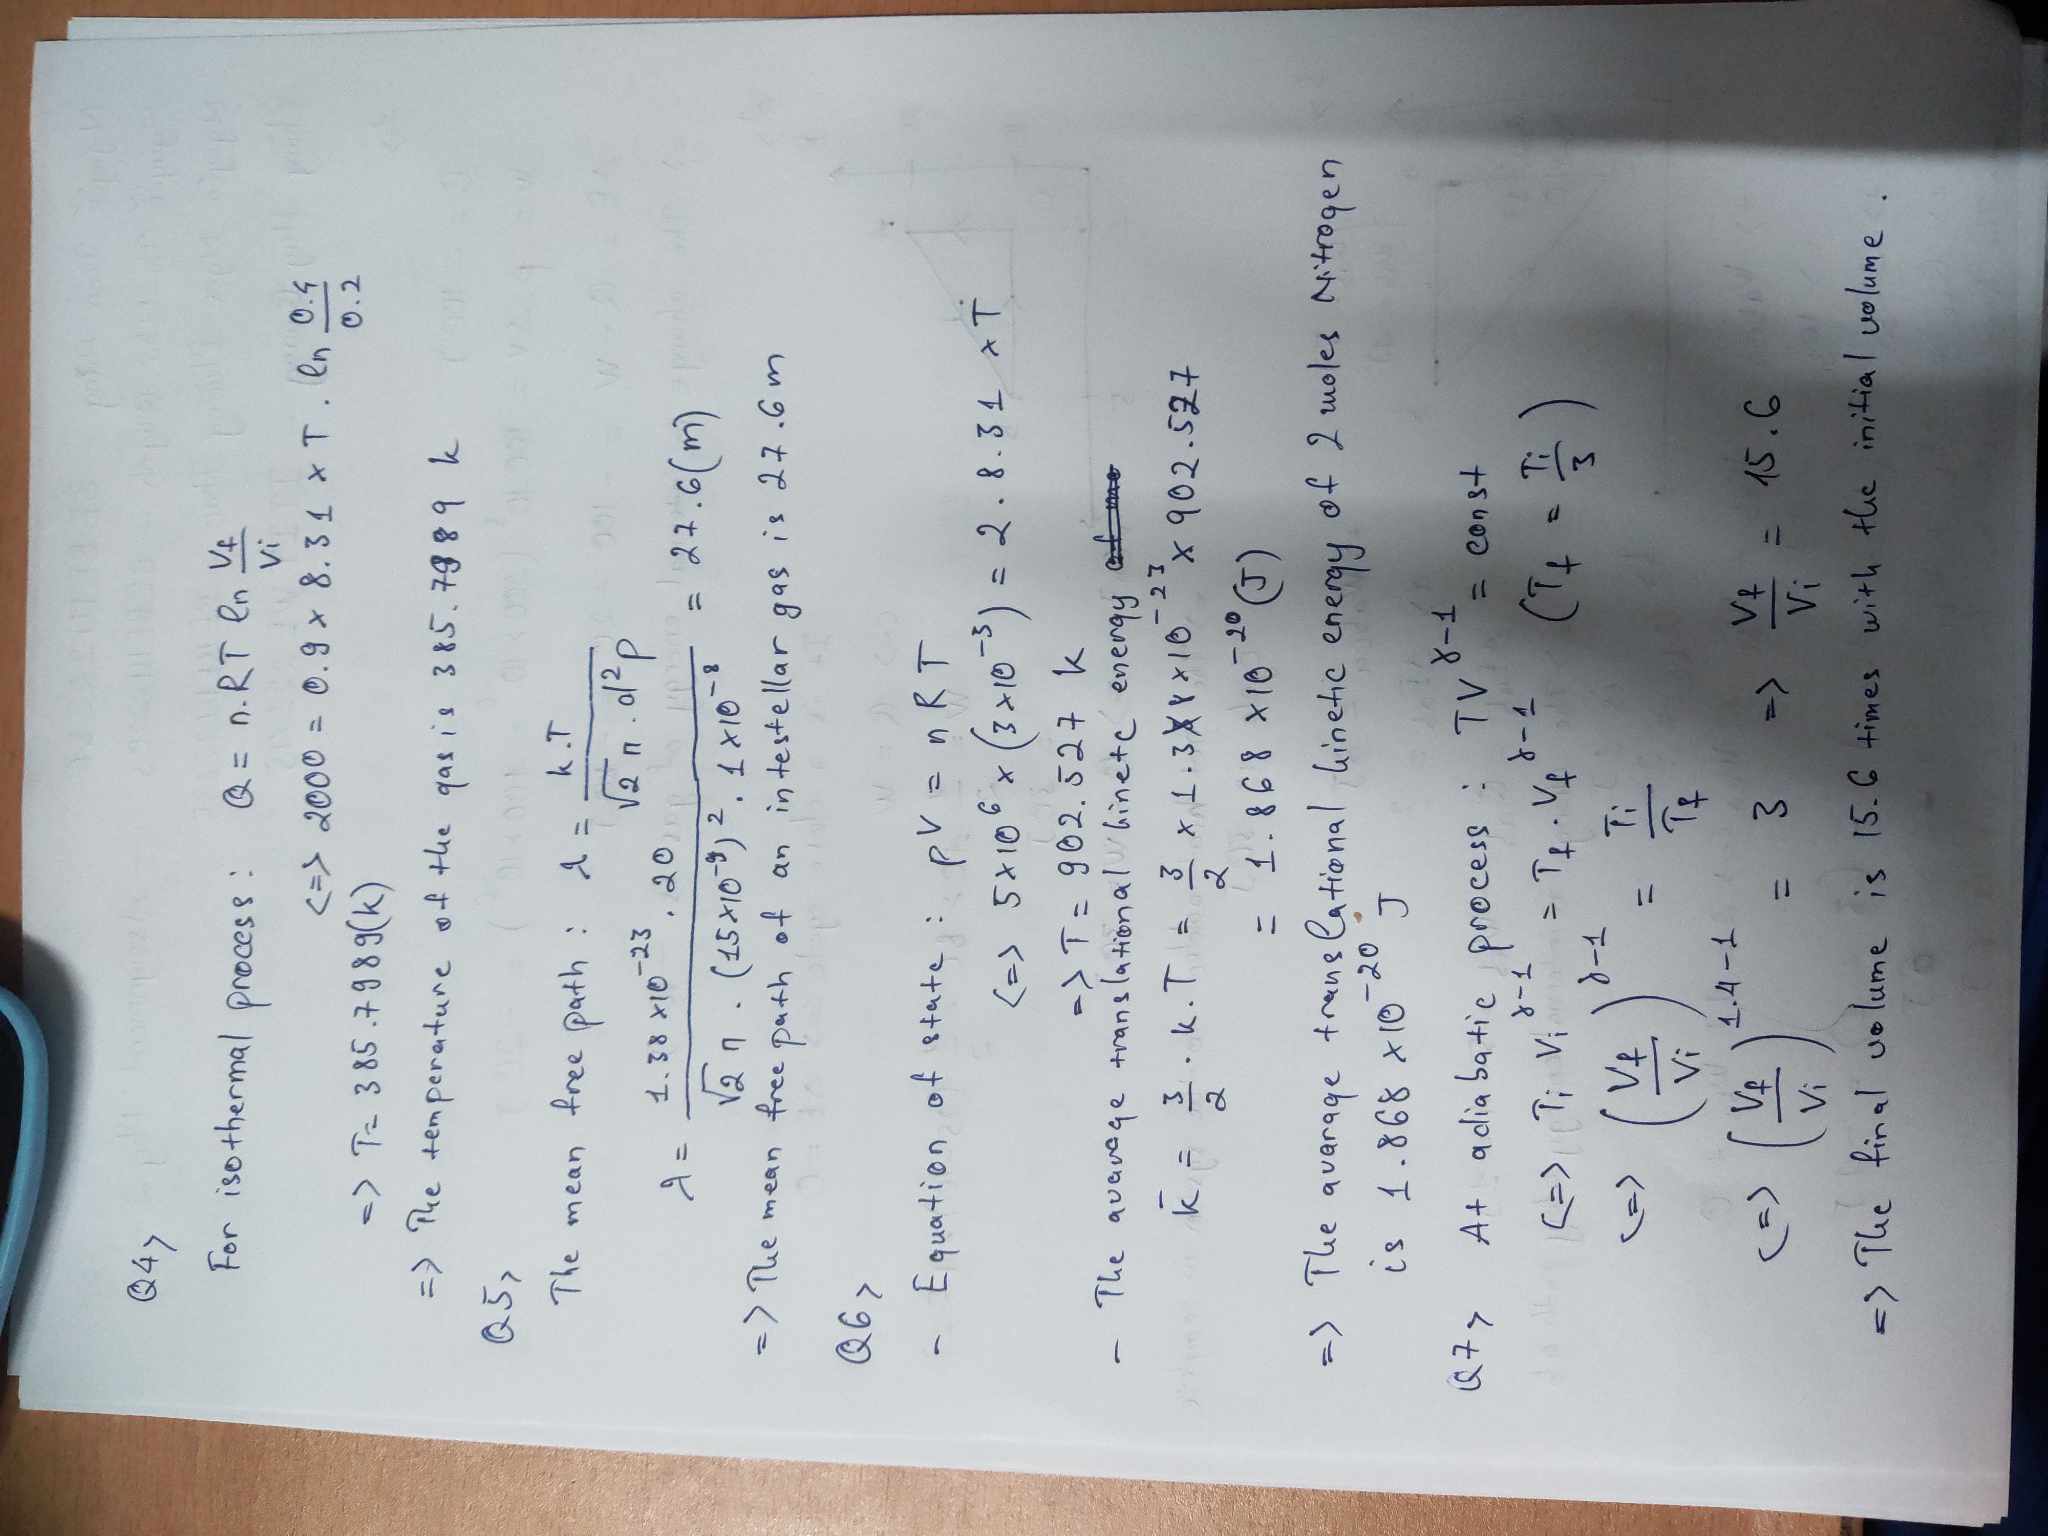 Q4>
For isothermal process : Q = n.RT ln Vf/Vi
<=> 2000 = 0.9 x 8.31 x T . ln 0.4/0.2
=> T = 385.7989(k)
=> The temperature of the gas is 385.7989 k
Q5>
The mean free path : λ = k.T / √2 π . d² p
λ = 1.38 x10⁻²³ . 20 / √2 π . (15x10⁻⁹)² . 1x10⁻⁸ = 27.6(m)
=> The mean free path of an intestellar gas is 27.6 m
Q6>
- Equation of state : pV = nRT
<=> 5x10⁶ x (3x10⁻³) = 2 . 8.31 x T
=> T = 902.527 k
- The avavage translational kinetc energy
k̄ = 3/2 . k.T = 3/2 x 1.38 x10⁻²³ x 902.527
= 1.868 x10⁻²⁰ (J)
=> The avarage translational kinetic energy of 2 moles Nitrogen
is 1.868 x10⁻²⁰ J
Q7> At adiabatic process : TV^γ-1 = const
<=> Ti Vi^γ-1 = Tf . Vf^γ-1 (Tf = Ti/3)
<=> (Vf/Vi)^γ-1 = Ti/Tf
<=> (Vf/Vi)^1.4-1 = 3 => Vf/Vi = 15.6
=> The final volume is 15.6 times with the initial volume .